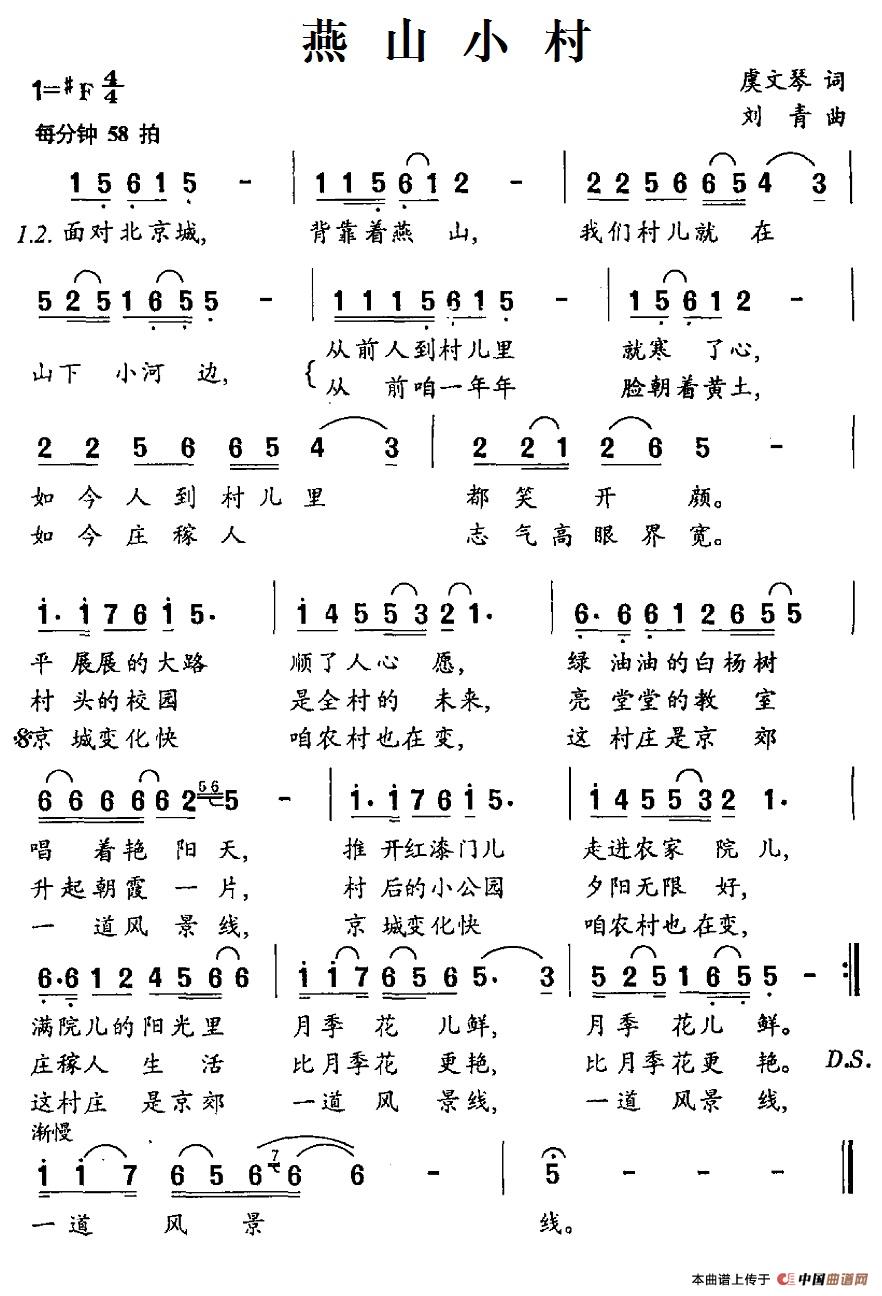 燕山小村
1=♯F 4/4
虞文琴 词
刘 青 曲
每分钟 58 拍
1 5 6 1 5 - | 1 1 5 6 1 2 - | 2 2 5 6 6 5 4 3
1.2. 面对北京城, 背靠着燕 山, 我们村儿就 在
5 2 5 1 6 5 5 - | 1 1 1 5 6 1 5 - | 1 5 6 1 2 -
山下 小河 边, { 从前人到村儿里 就寒 了心,
从 前咱一年年 脸朝着黄土,
2 2 5 6 6 5 4 3 | 2 2 1 2 6 5 -
如今人到村儿里 都笑开 颜。
如今庄稼人 志气高眼界宽。
1· 1 7 6 1 5· | 1 4 5 5 3 2 1· | 6· 6 6 1 2 6 5 5
平 展展的大路 顺了人心 愿, 绿 油油的白杨树
村 头的校园 是全村的 未来, 亮 堂堂的教 室
𝄋京 城变化快 咱农村也在变, 这 村庄是京 郊
6 6 6 6 6 2 56 5 - | 1· 1 7 6 1 5· | 1 4 5 5 3 2 1·
唱 着艳 阳天, 推 开红漆门儿 走进农家 院儿,
升起朝霞 一片, 村 后的小公园 夕阳无限 好,
一 道风 景线, 京 城变化快 咱农村也在变,
6·6 1 2 4 5 6 6 | 1 1 7 6 5 6 5· 3 | 5 2 5 1 6 5 5 - :‖
满院儿的阳光里 月季 花 儿鲜, 月季 花儿 鲜。
庄稼人 生 活 比月季花 更艳, 比月季花更 艳。 D.S.
这村庄 是京郊 一道 风 景线, 一道 风景 线,
渐慢
1 1 7 6 5 6 7 6 6 - | 5 - - - ‖
一道 风 景 线。
本曲谱上传于 中国曲谱网